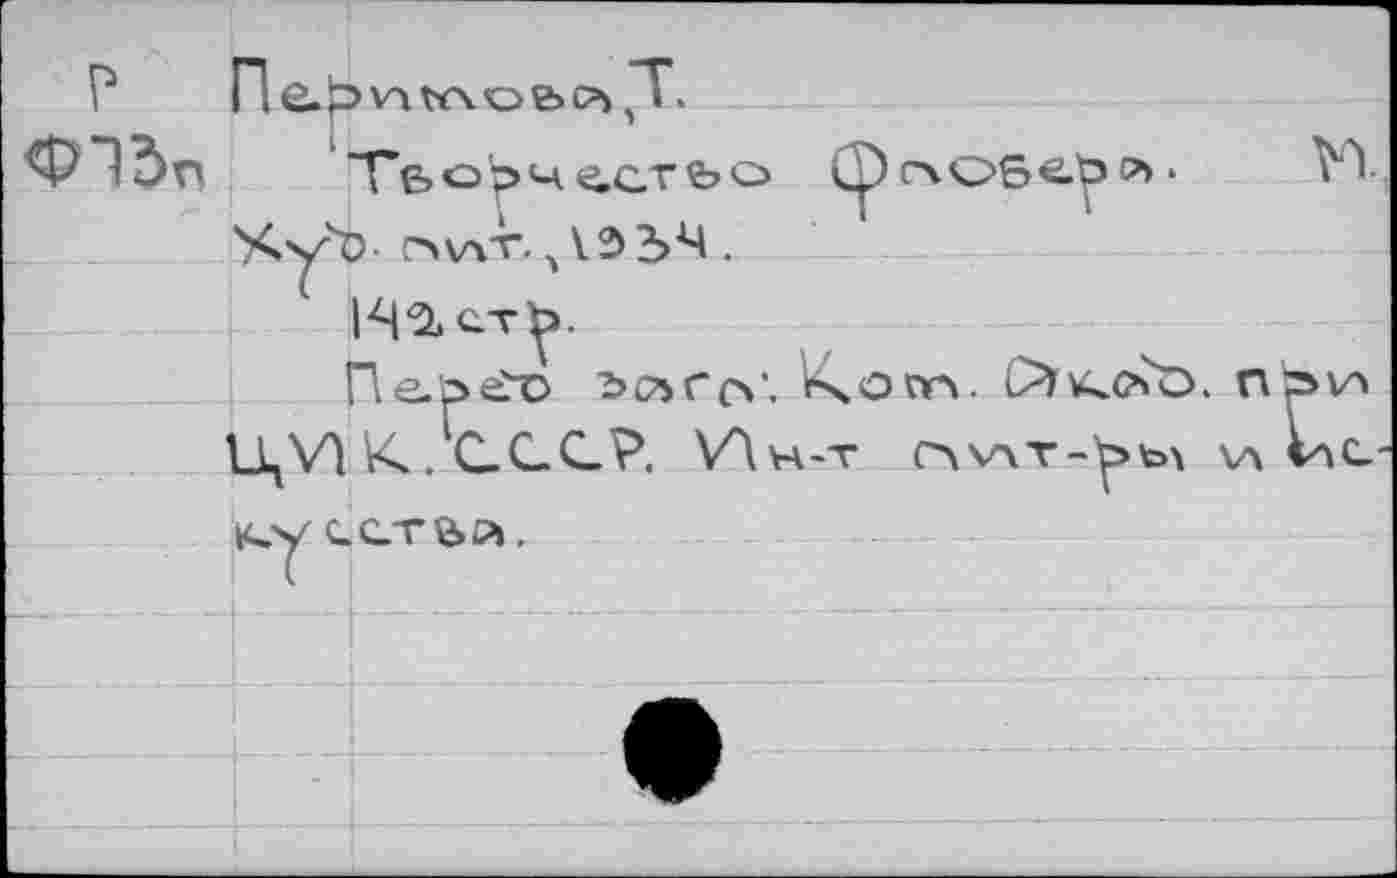 Р Перимова, Т.
Ф73п Творчество Флобера. М.
Худ. лит., 1934.
142 стр.
Перед загл: Ком. Акад. при
ЦИК. СССР. Ин-т лит-ры и ис-
кусства.